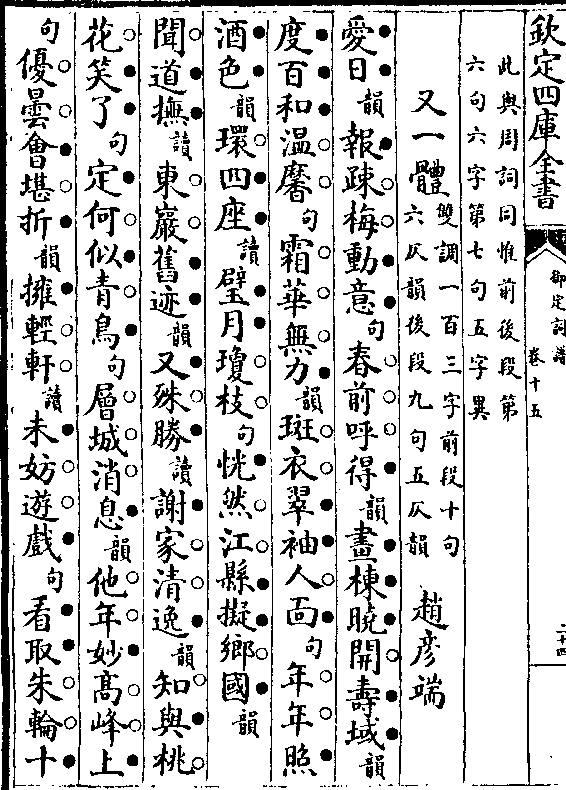 欽定四庫全書
御定詞譜
卷十五
二十四
此與周詞同惟前後段第
六句六字第七句五字異
又一體
雙調一百三字前段十句
六仄韻後段九句五仄韻
趙彦端
愛日韻報疎梅動意句春前呼得韻畫棟曉開壽域韻
度百和溫黁句霜華無力韻斑衣翠袖人面句年年照
酒色韻環四座讀璧月瓊枝句恍然江縣擬鄉國韻
聞道撫讀東巖舊迹韻又殊勝讀謝家清逸韻知與桃
花笑了句定何似青鳥句層城消息韻他年妙高峰上
句優曇會堪折韻擁輕軒讀未妨遊戲句看取朱輪十